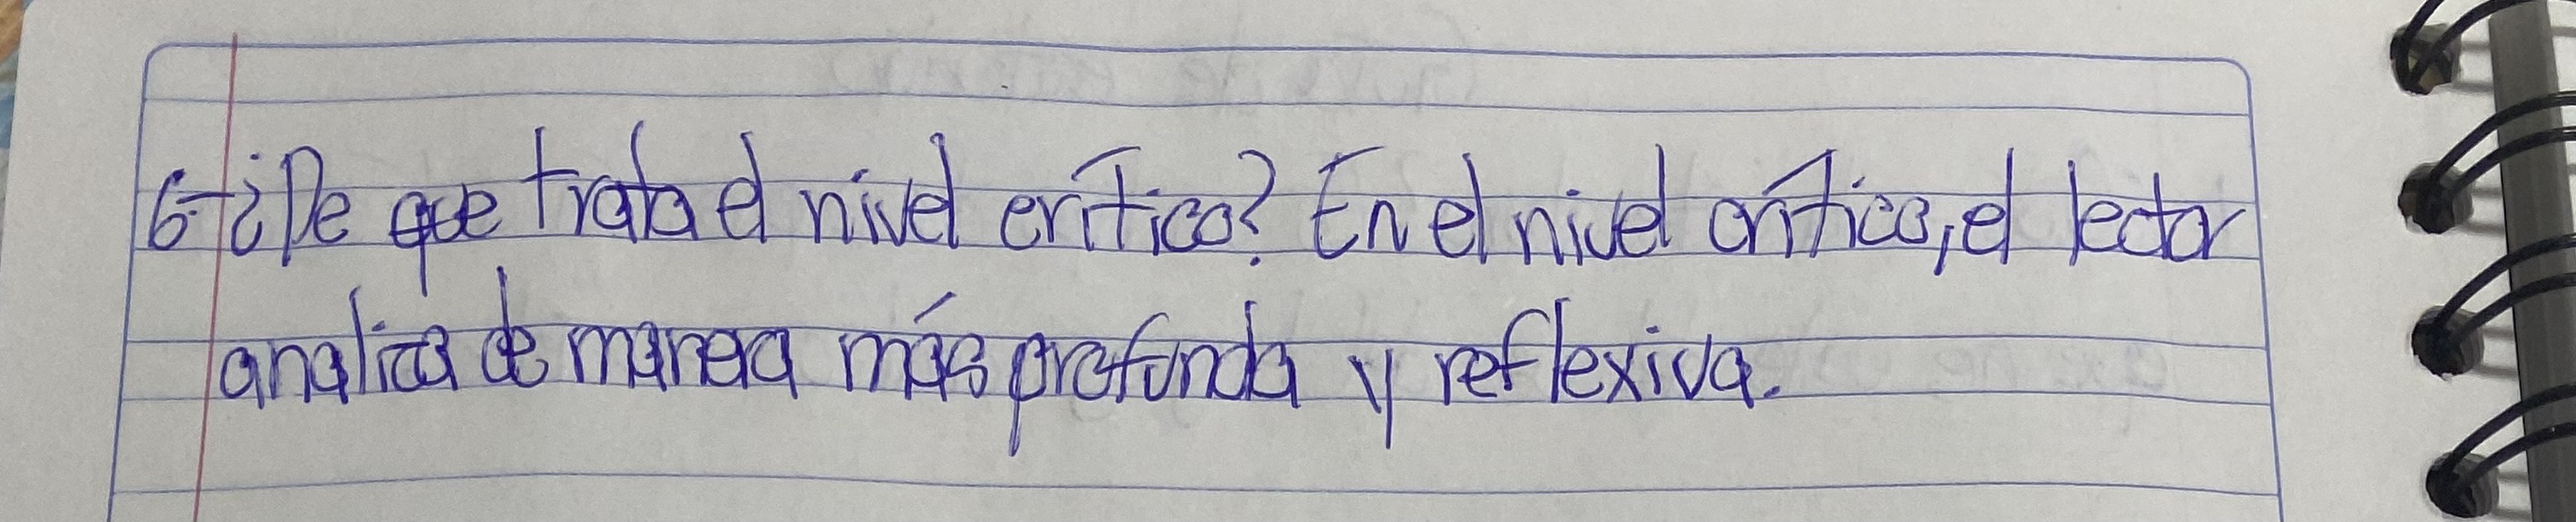 6-¿De que trata el nivel crítico? En el nivel crítico, el lector
analiza de manera más profunda y reflexiva.